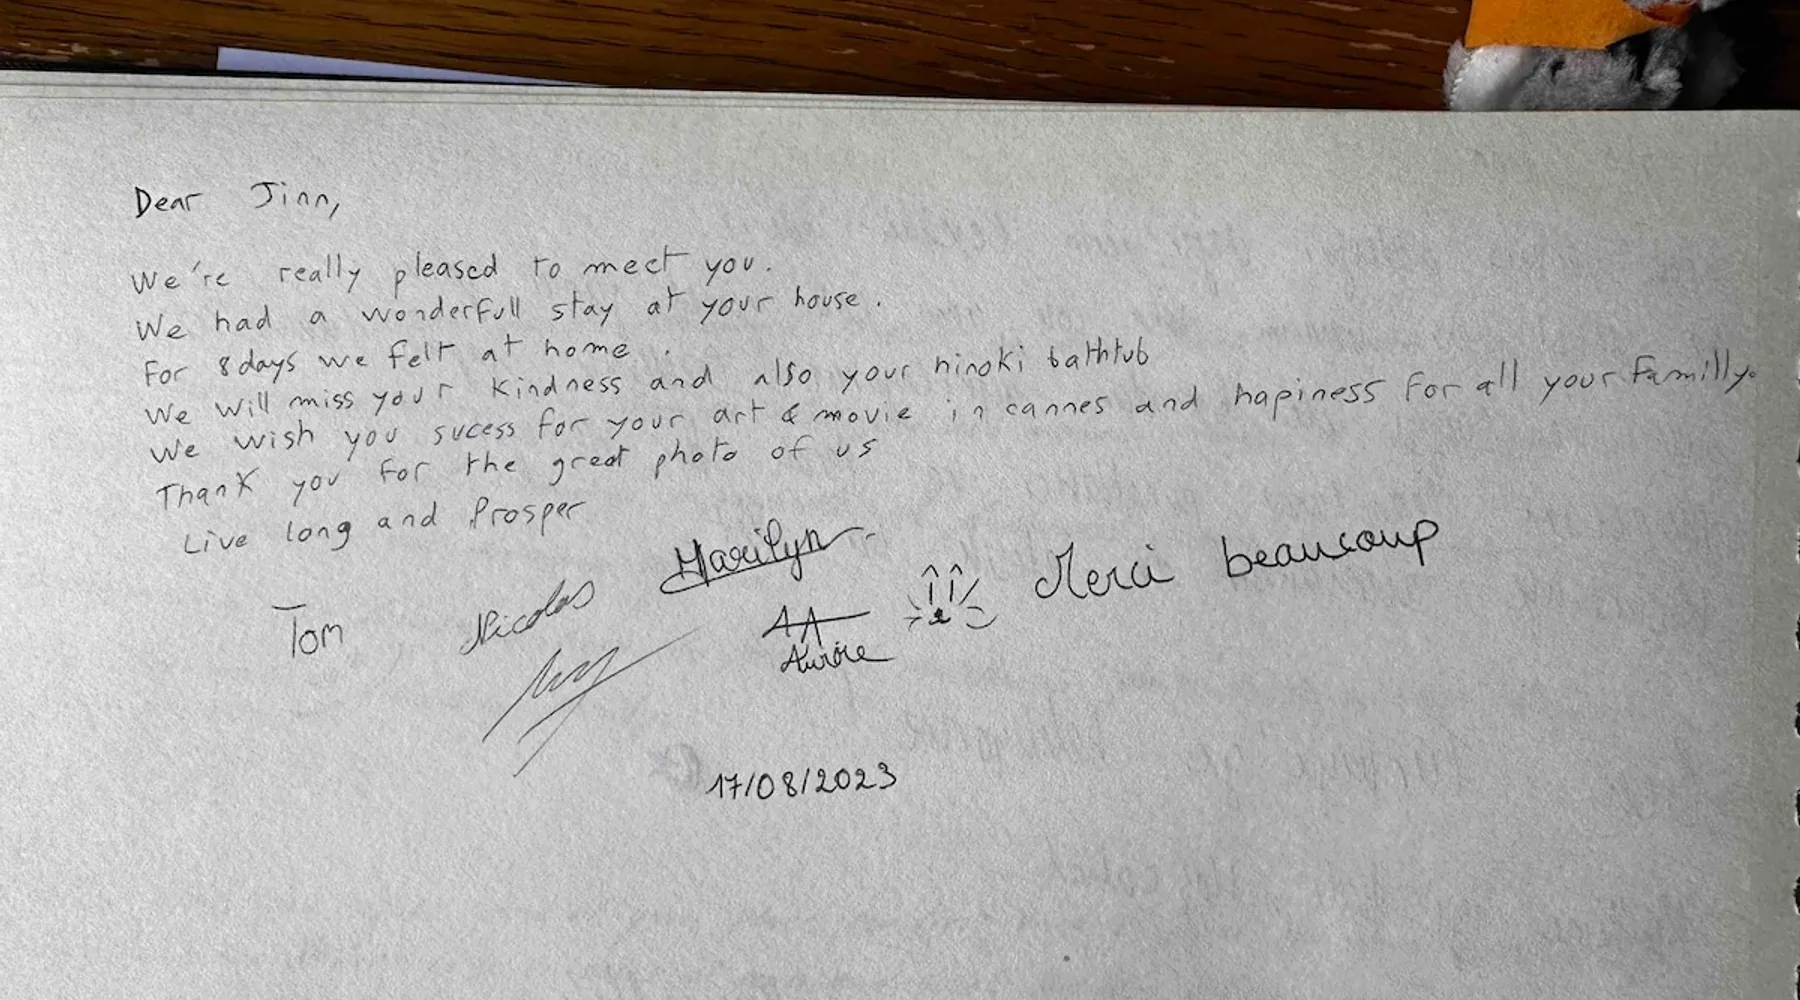 Dear Jinn,
We're really pleased to meet you.
We had a wonderfull stay at your house.
For 8 days we felt at home.
We will miss your kindness and also your hinoki bathtub
We wish you sucess for your art & movie in cannes and hapiness for all your familly.
Thank you for the great photo of us
Live long and Prosper
Marilyn
Merci beaucoup
Tom
Nicolas
Aurore
17/08/2023